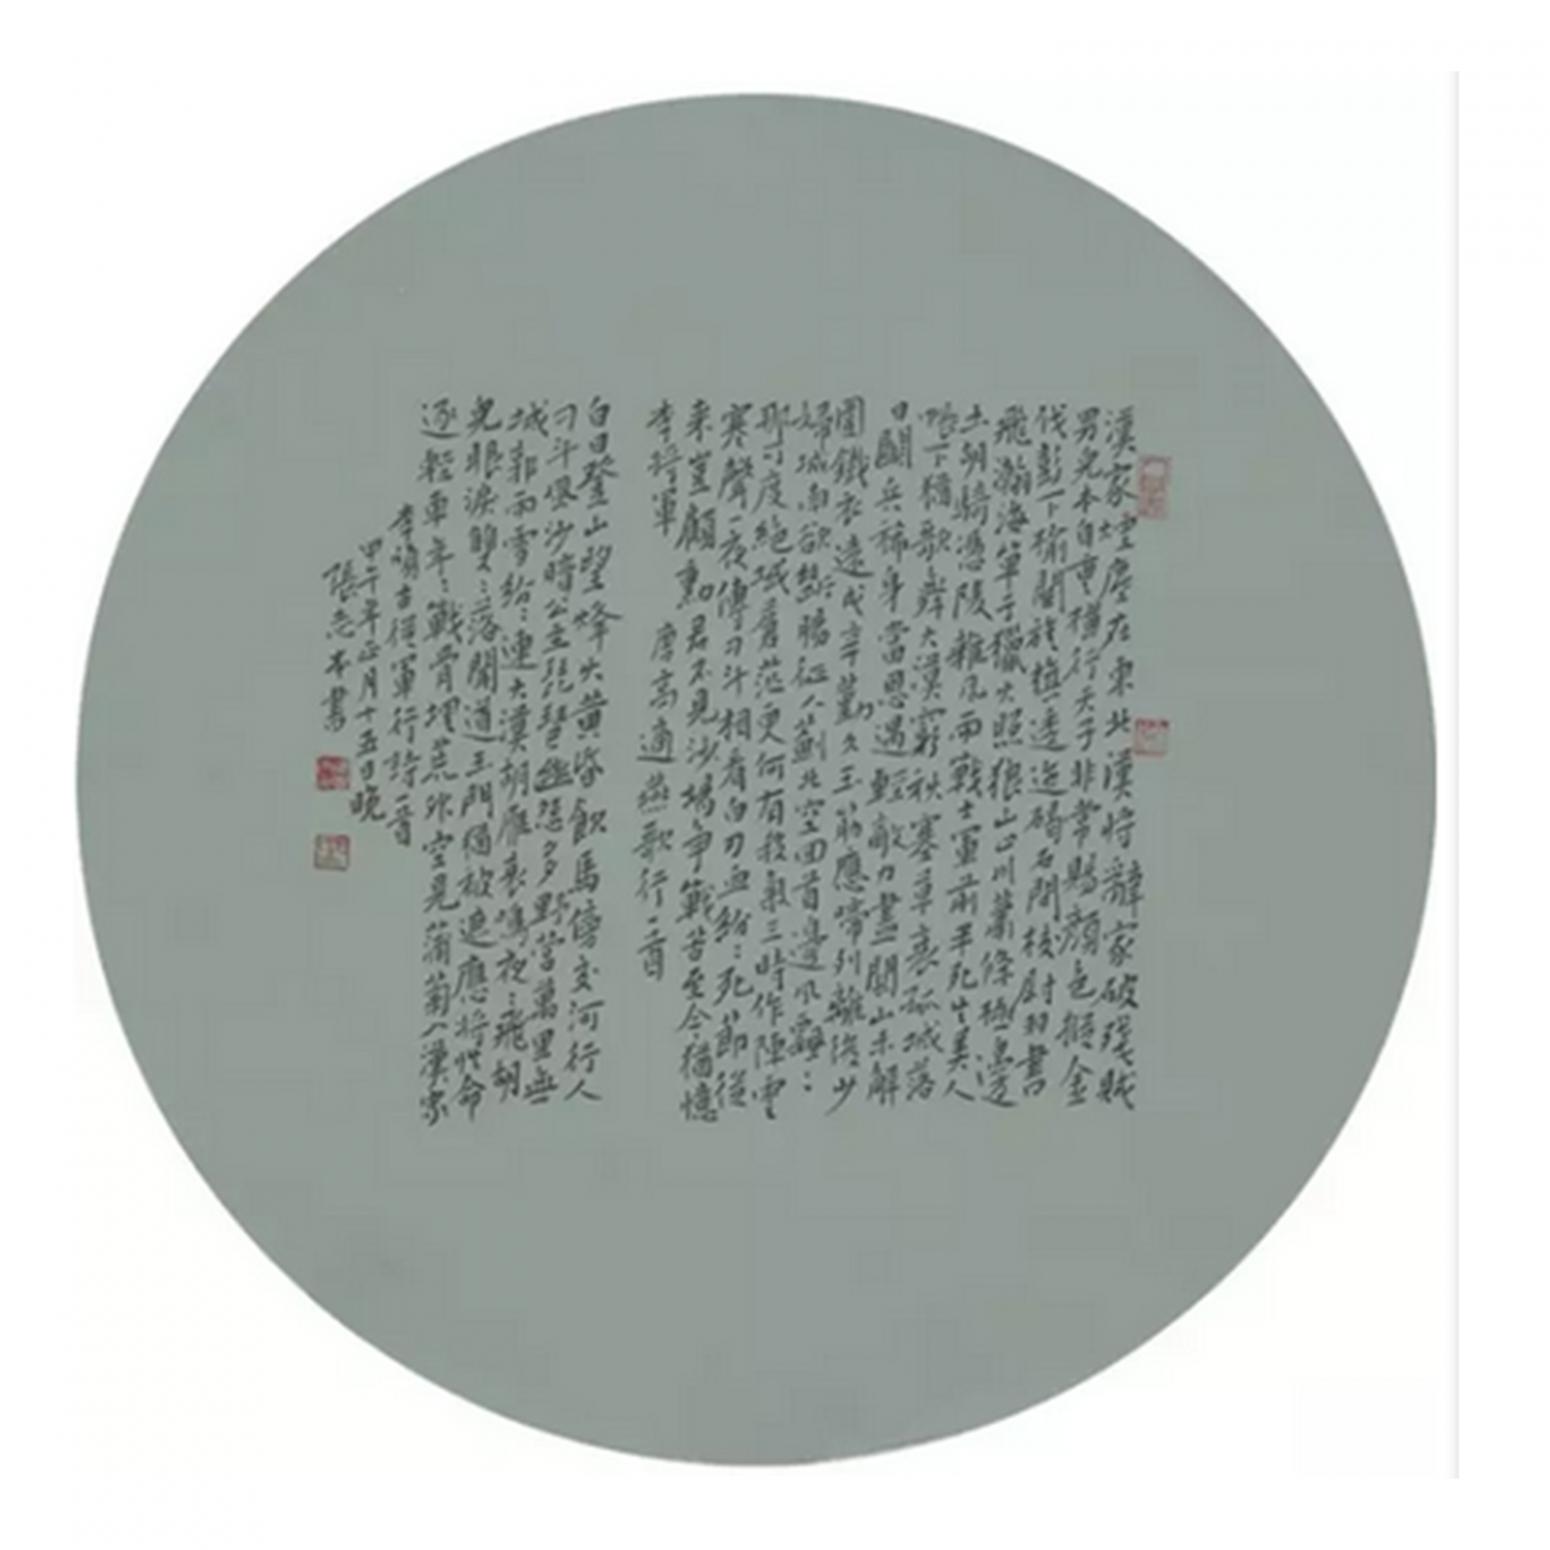 漢家煙塵在東北漢將辭家破殘賊
男兒本自重橫行天子非常賜顏色摐金
伐鼓下榆關旌旗逶迤碣石間校尉羽書
飛瀚海單于獵火照狼山山川蕭條極邊
土胡騎憑陵雜風雨戰士軍前半死生美人
帳下猶歌舞大漠窮秋塞草衰孤城落
日鬭兵稀身當恩遇輕敵力盡關山未解
圍鐵衣遠戍辛勤久玉筋應啼別離後少
婦城南欲斷腸征人薊北空回首邊風飄〻
那可度絕域蒼茫更何有殺氣三時作陣雲
寒聲一夜傳刁斗相看白刃血紛〻死節從
來豈顧勳君不見沙場爭戰苦至今猶憶
李將軍 唐高適燕歌行一首
白日登山望烽火黃昏飲馬傍交河行人
刁斗風沙暗公主琵琶幽怨多野營萬里無
城郭雨雪紛〻連大漠胡雁哀鳴夜〻飛胡
兒眼淚雙〻落聞道玉門猶被遮應將性命
逐輕車年〻戰骨埋荒外空見蒲萄入漢家
李頎古從軍行詩一首
甲午年正月十五日晚
張志本書